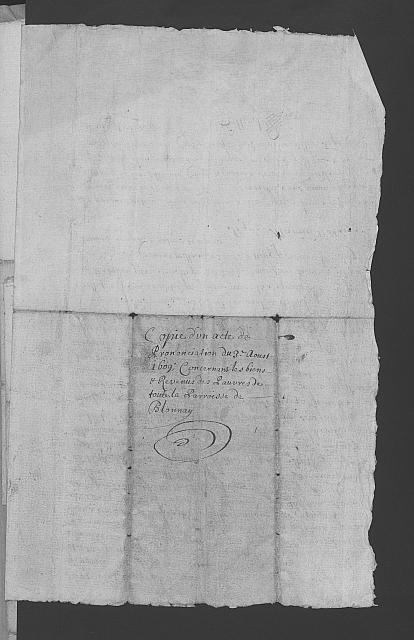 Copie d'un acte de
Prononciation du 9e Aoust
1609. Concernant les biens
& Revenus des Pauvres de
toute la Parroisse de
Blonnay